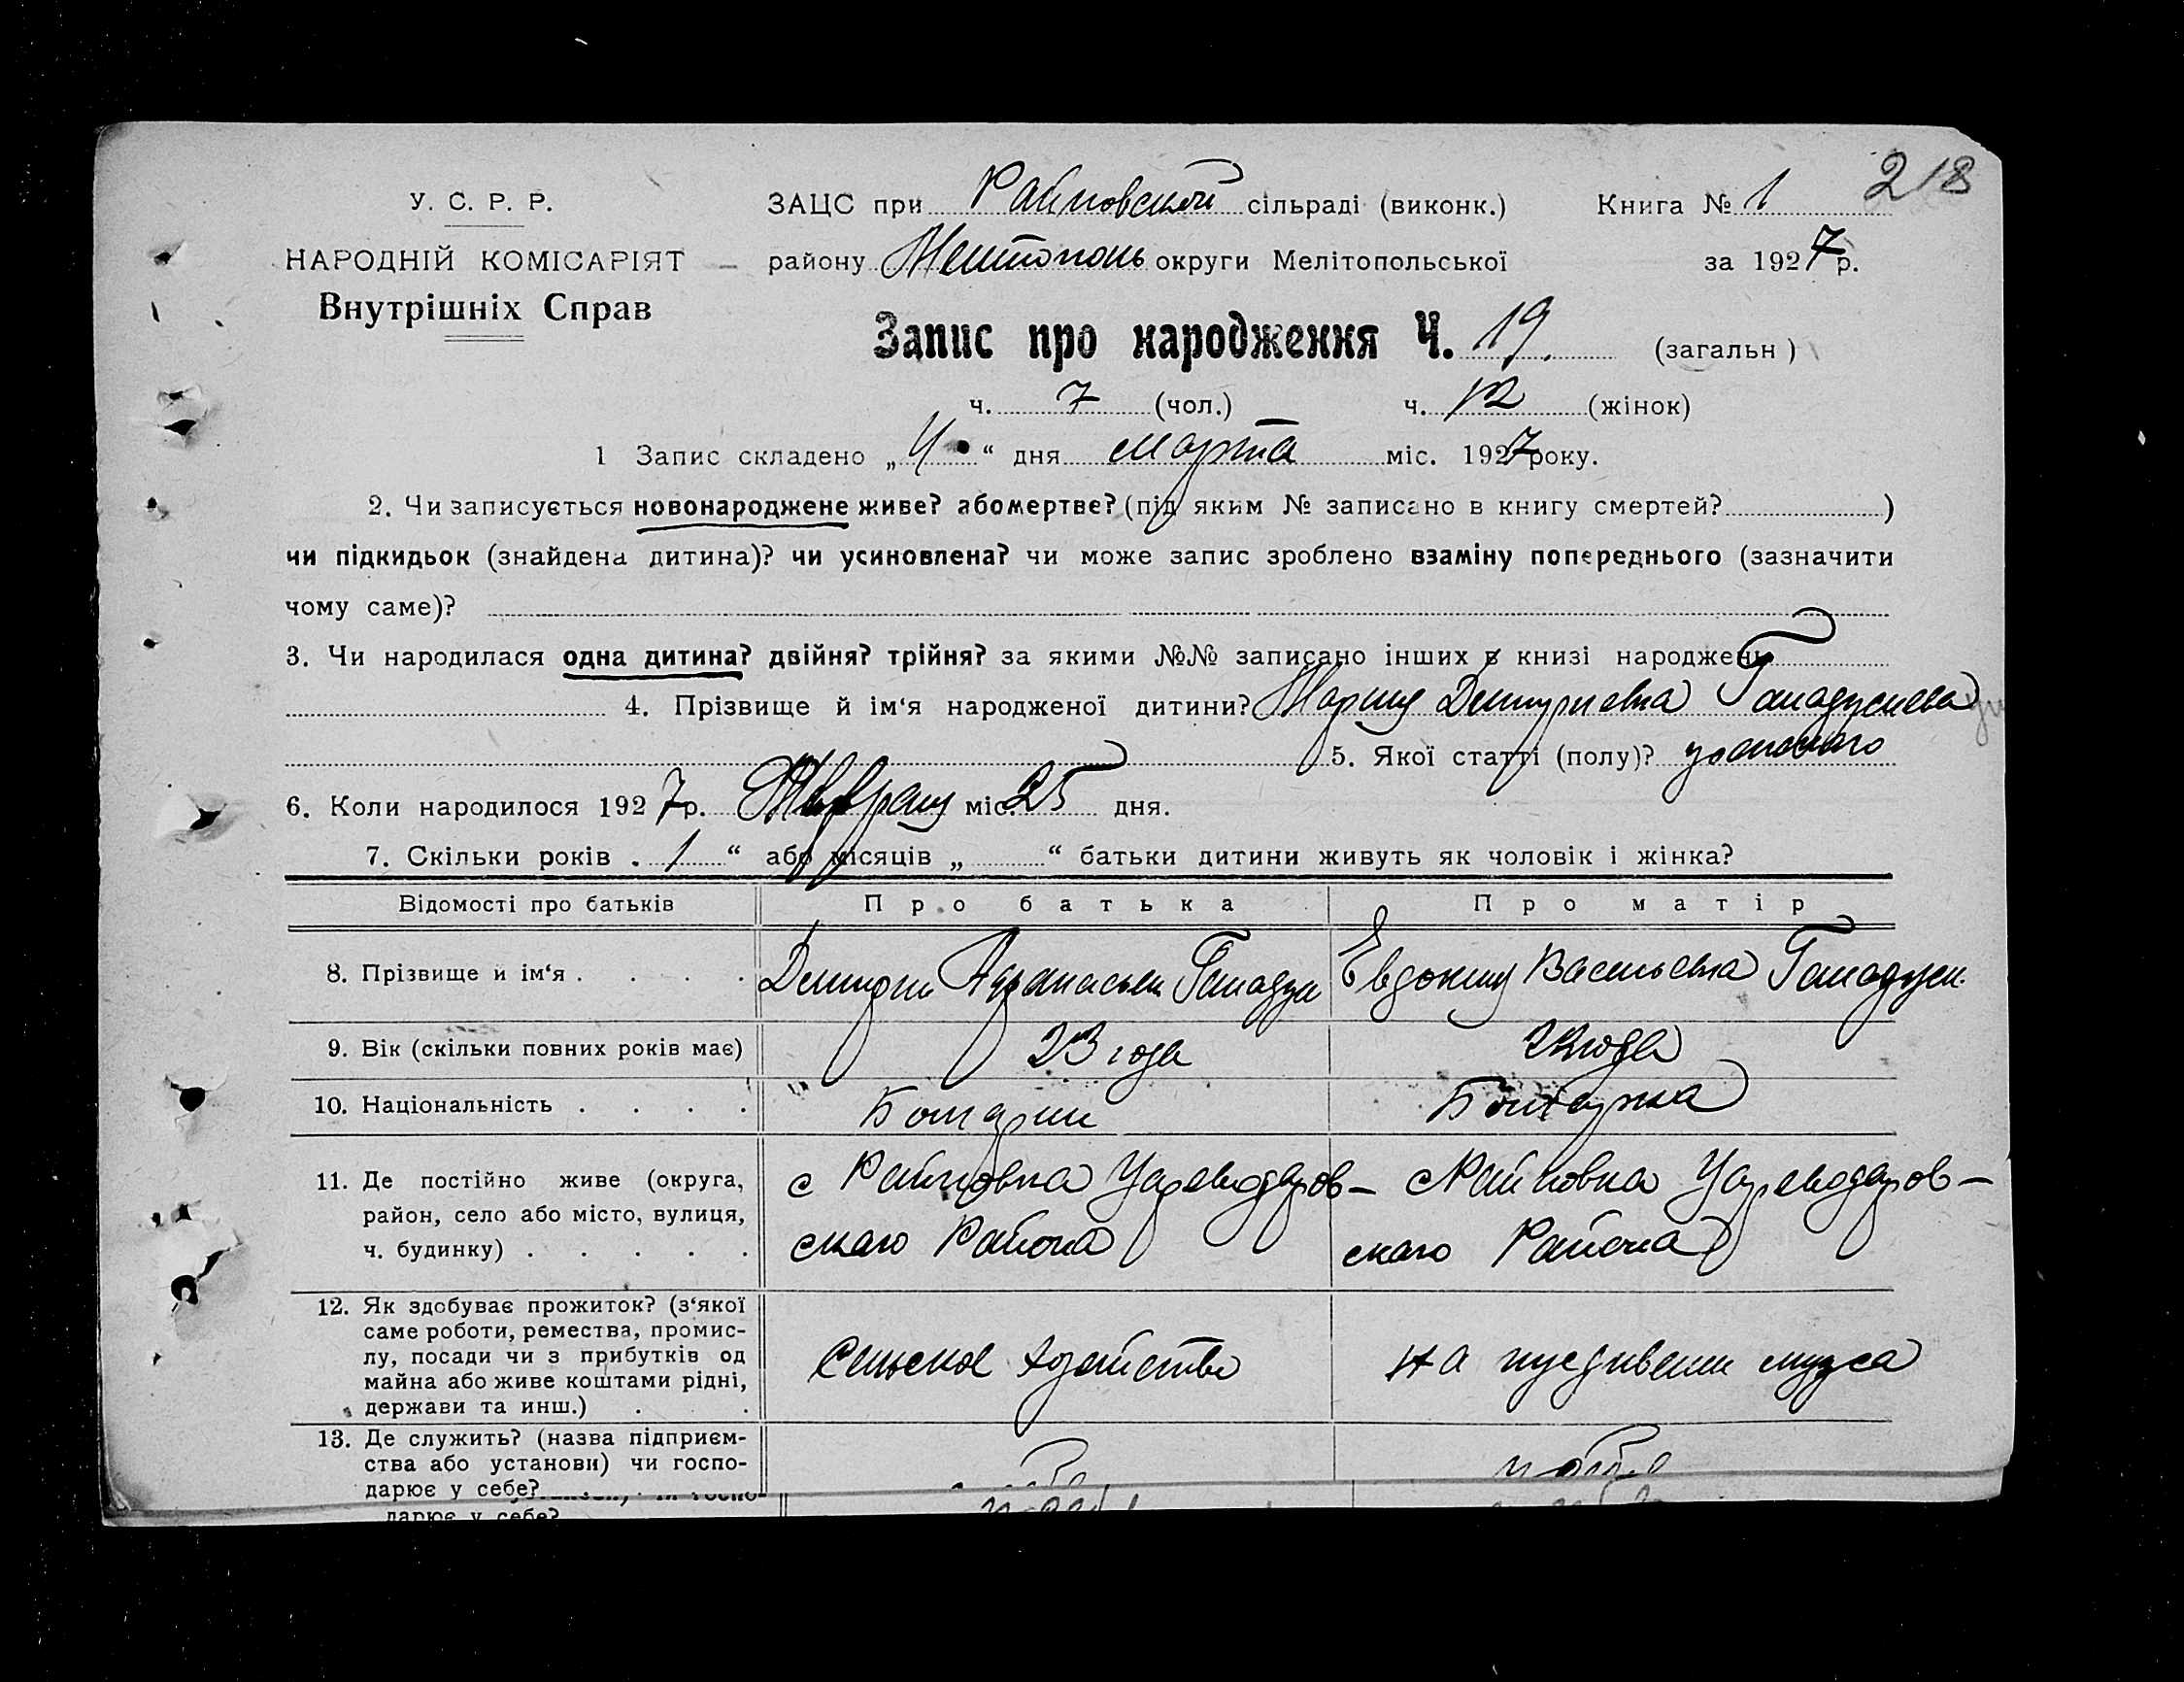 218
У. С. Р. Р.
НАРОДНІЙ КОМІСАРІЯТ
Внутрішніх Справ
ЗАЦС при Райновской сільраді (виконк.) Книга № 1
району округи Мелітопольської за 1927 р.
Запис про народження Ч. 19. (загальн)
ч. 7 (чол.) ч. 12 (жінок)
1 Запис складено „4“ дня марта міс. 1927 року.
2. Чи записується новонароджене живе? або мертве? (під яким № записано в книгу смертей? )
чи підкидьок (знайдена дитина)? чи усиновлена? чи може запис зроблено взаміну попереднього (зазначити
чому саме)?
3. Чи народилася одна дитина? двійня? трійня? за якими №№ записано інших в книзі народжень
4. Прізвище й ім‘я народженої дитини? Мария Димитриевна
5. Якої статті (полу)?
6. Коли народилося 1927 р. Февраля міс. 25 дня.
7. Скільки років . 1 “ або місяців „ “ батьки дитини живуть як чоловік і жінка?
Відомості про батьків Про батька Про матір
8. Прізвище и ім‘я . . . . Димитрий Афанасьев Евдокия Васильевна
9. Вік (скільки повних років має) 23 года 22 года
10. Національність . . . . Болгарин Болгарка
11. Де постійно живе (округа,
район, село або місто, вулиця,
ч. будинку) . . . . .
с Райновка Цареводаров-
скаго Района
с Райновка Цареводаров-
скаго Района
12. Як здобуває прожиток? (з‘якої
саме роботи, ремества, промис-
лу, посади чи з прибутків од
майна або живе коштами рідні,
держави та инш.) . .
Сельское хозяйство
на иждивении мужа
13. Де служить? (назва підприєм-
ства або установи) чи госпо-
дарює у себе?
дарює у себе?